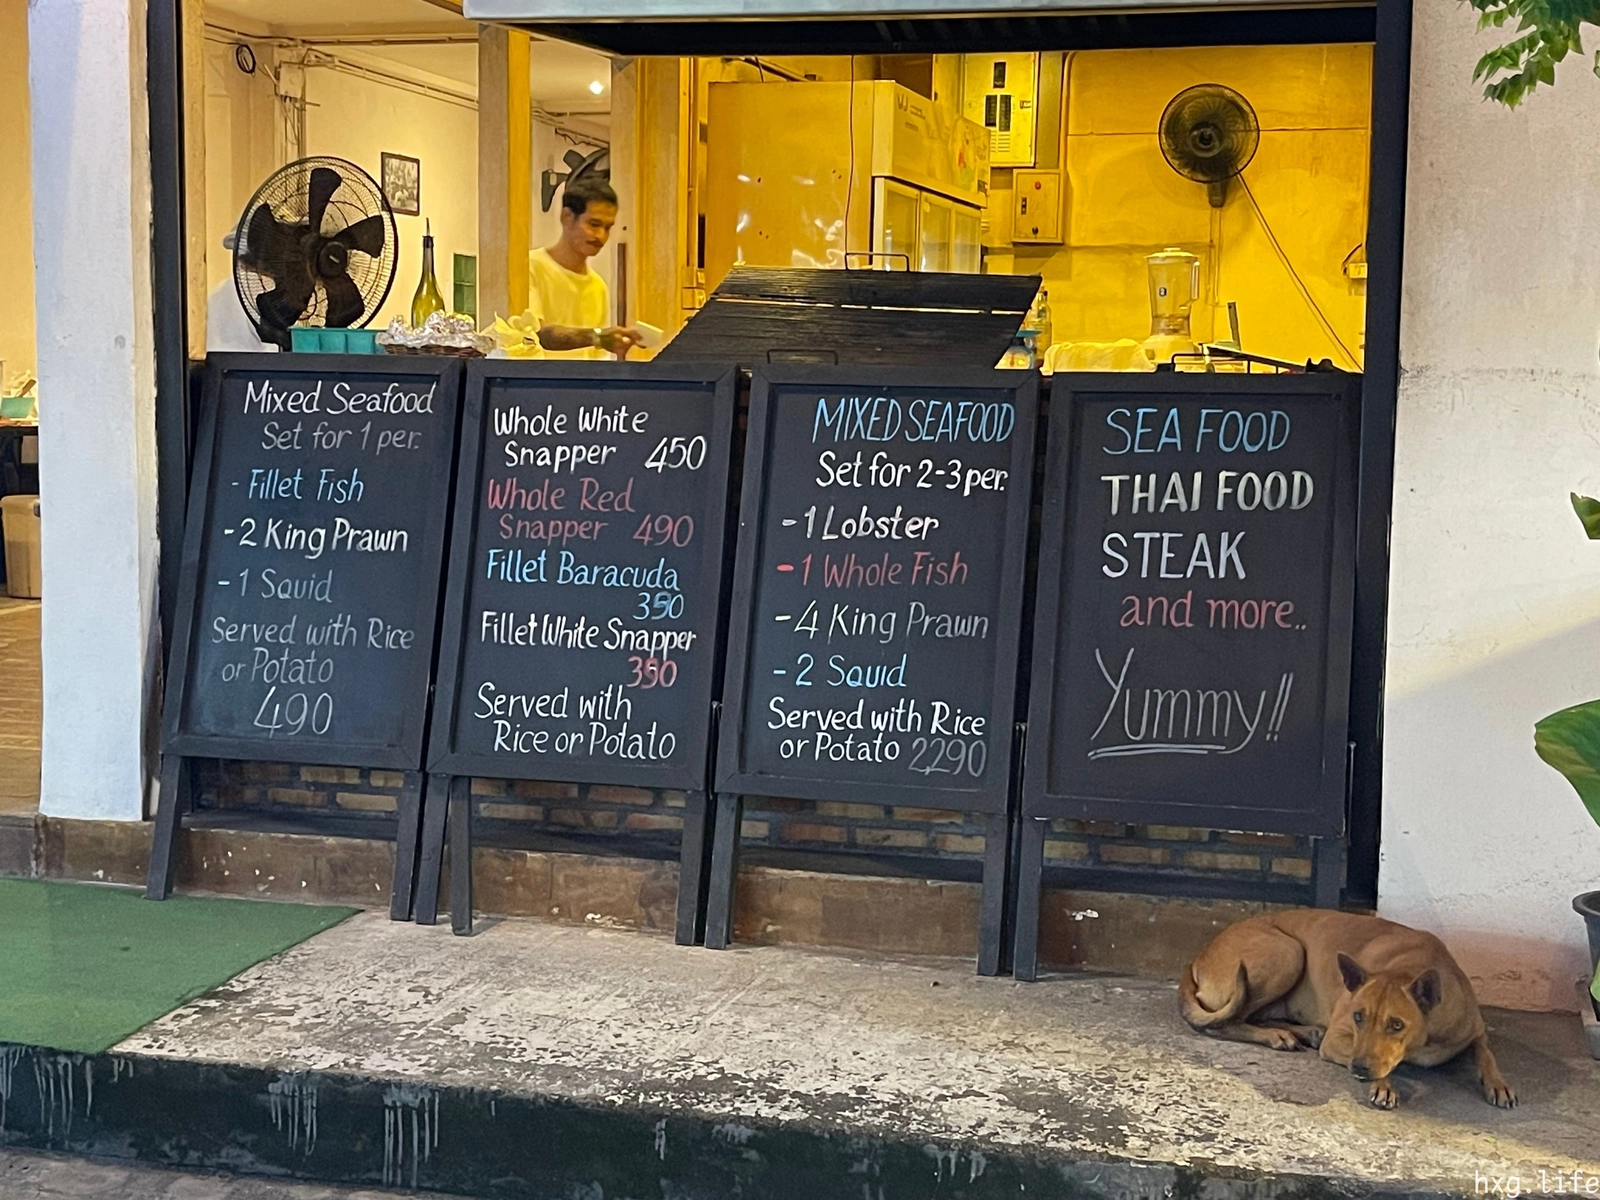 Mixed Seafood
Set for 1 per.
- Fillet Fish
- 2 King Prawn
- 1 Squid
Served with Rice
or Potato
490
Whole White
Snapper 450
Whole Red
Snapper 490
Fillet Baracuda
350
Fillet White Snapper
350
Served with
Rice or Potato
MIXED SEAFOOD
Set for 2-3 per.
- 1 Lobster
- 1 Whole Fish
- 4 King Prawn
- 2 Squid
Served with Rice
or Potato 2,290
SEA FOOD
THAI FOOD
STEAK
and more..
Yummy!!
hxg.life